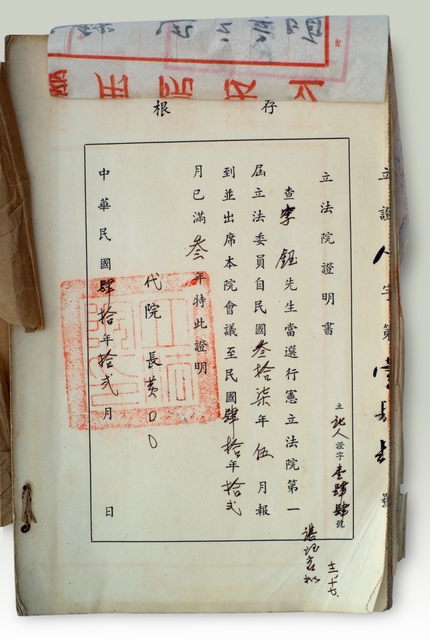 存根
立法院證明書
證字壹肆肆號
查李鈺先生當選行憲立法院第一
屆立法委員自民國叁拾柒年伍月報
到並出席本院會議至民國肆拾年拾弍
月已滿叁年特此證明
代院長黃〇〇
中華民國肆拾年拾弍月 日